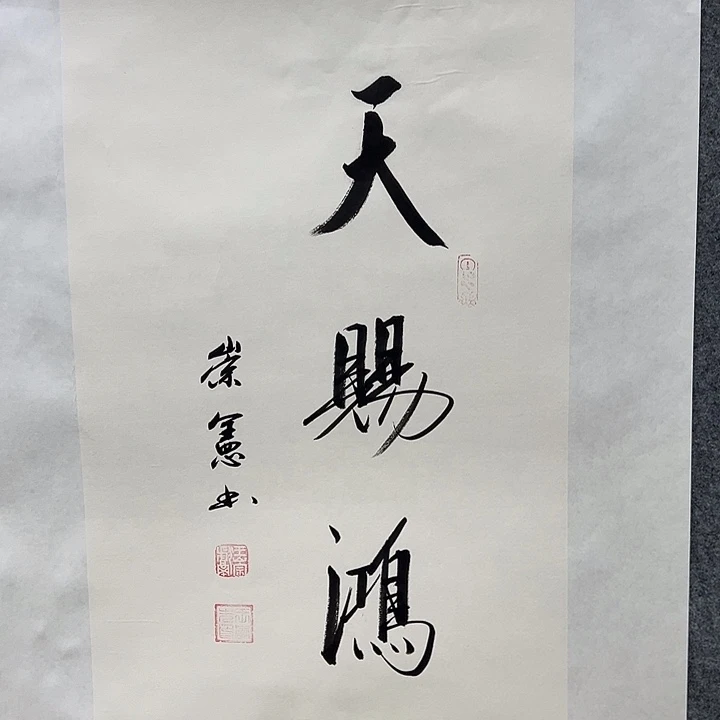 天賜鴻
崇憲书